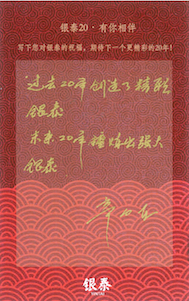 银泰20·有你相伴
写下您对银泰的祝福，期待下一个更精彩的20年！
过去20年创造了精彩
银泰
未来20年铸就出强大
银泰
银泰